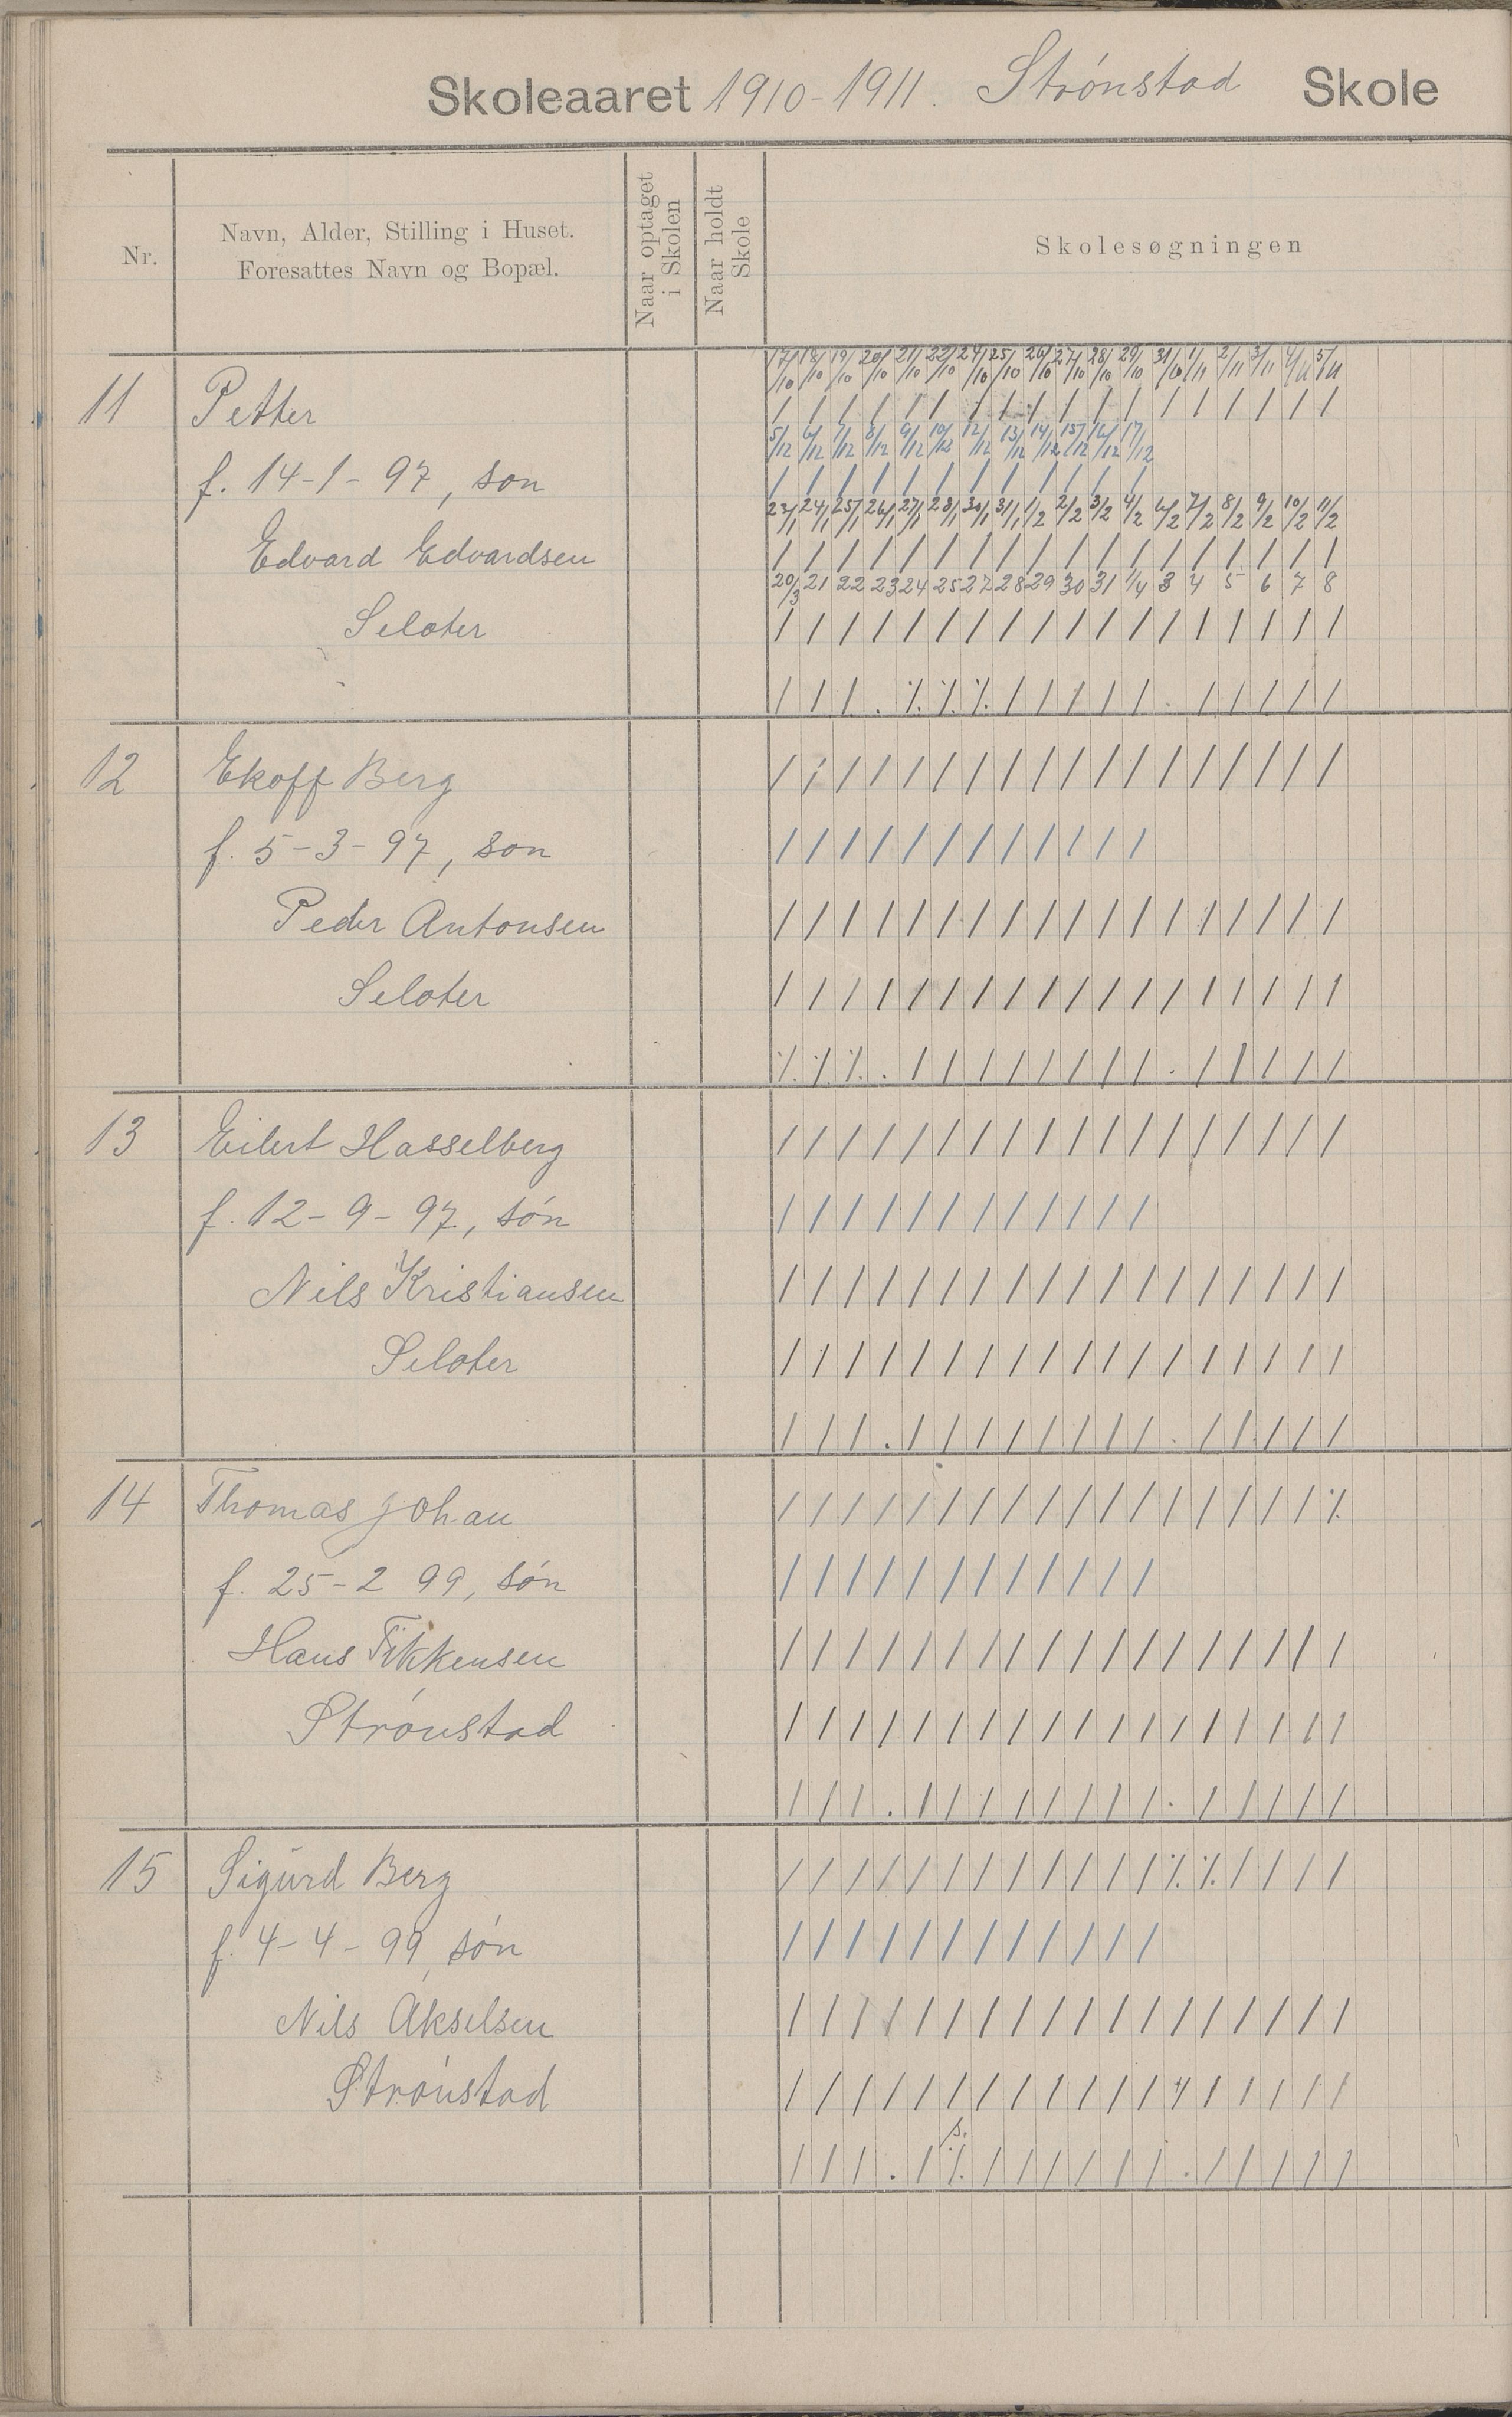 Skoleaaret 1910-1911. Strønstad Skole
Nr.
Navn, Alder, Stilling i Huset.
Foresattes Navn og Bopæl.
Naar optaget
i Skolen
Naar holdt
Skole
Skolesøgningen
17/10 18/10 19/10 20/10 21/10 22/10 24/10 25/10 26/10 27/10 28/10 29/10 31/10 1/11 2/11 3/11 4/11 5/11
11 Petter / / / / / / / / / / / / / / / / / /
5/12 6/12 7/12 8/12 9/12 10/12 12/12 13/12 14/12 15/12 16/12 17/12
f. 14-1-97, son / / / / / / / / / / / /
23/1 24/1 25/1 26/1 27/1 28/1 30/1 31/1 1/2 2/2 3/2 4/2 6/2 7/2 8/2 9/2 10/2 11/2
Edvard Edvardsen / / / / / / / / / / / / / / / / / /
20/3 21 22 23 24 25 27 28 29 30 31 1/4 3 4 5 6 7 8
Seloter / / / / / / / / / / / / / / / / / /
/ / / . ·/. ·/. ·/. / / / / / . / / / / /
12 Ekoff Berg / / / / / / / / / / / / / / / / / /
f. 5-3-97, son / / / / / / / / / / / /
Peder Antonsen / / / / / / / / / / / / / / / / / /
Seloter / / / / / / / / / / / / / / / / / /
·/. ·/. ·/. . / / / / / / / / . / / / / /
13 Eilert Hasselberg / / / / / / / / / / / / / / / / / /
f. 12-9-97, søn / / / / / / / / / / / /
Nils Kristiansen / / / / / / / / / / / / / / / / / /
Seloter / / / / / / / / / / / / / / / / / /
/ / / . / / / / / / / / . / / / / /
14 Thomas Johan / / / / / / / / / / / / / / / / / ·/.
f. 25-2 99, søn / / / / / / / / / / / /
Hans / / / / / / / / / / / / / / / / / /
Strønstad / / / / / / / / / / / / / / / / / /
/ / / . / / / / / / / / . / / / / /
15 Sigurd Berg / / / / / / / / / / / / ·/. ·/. / / / /
f. 4-4-99, søn / / / / / / / / / / / /
Nils Akselsen / / / / / / / / / / / / / / / / / /
Strønstad / / / / / / / / / / / / / / / / / /
s.
/ / / . / ·/. / / / / / / . / / / / /